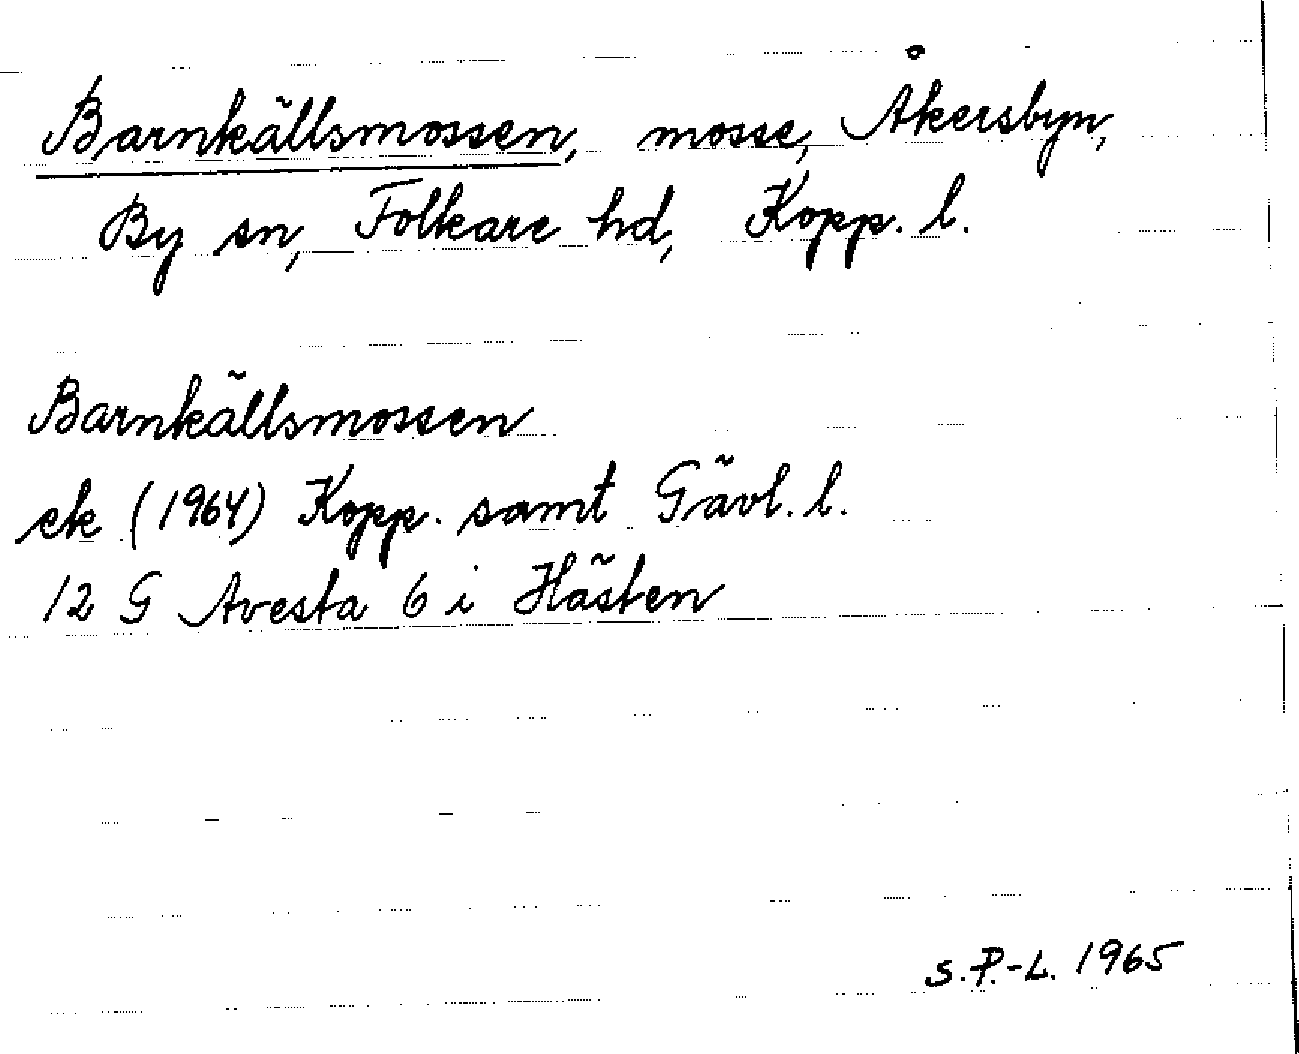 Barnkällsmossen, mosse, Åkersbyn,
By sn, Folkare hd, Kopp. l.
Barnkällsmossen
ek (1964) Kopp. samt Gävl. l.
12 G Avesta 6 i Hästen
S.P.-L. 1965